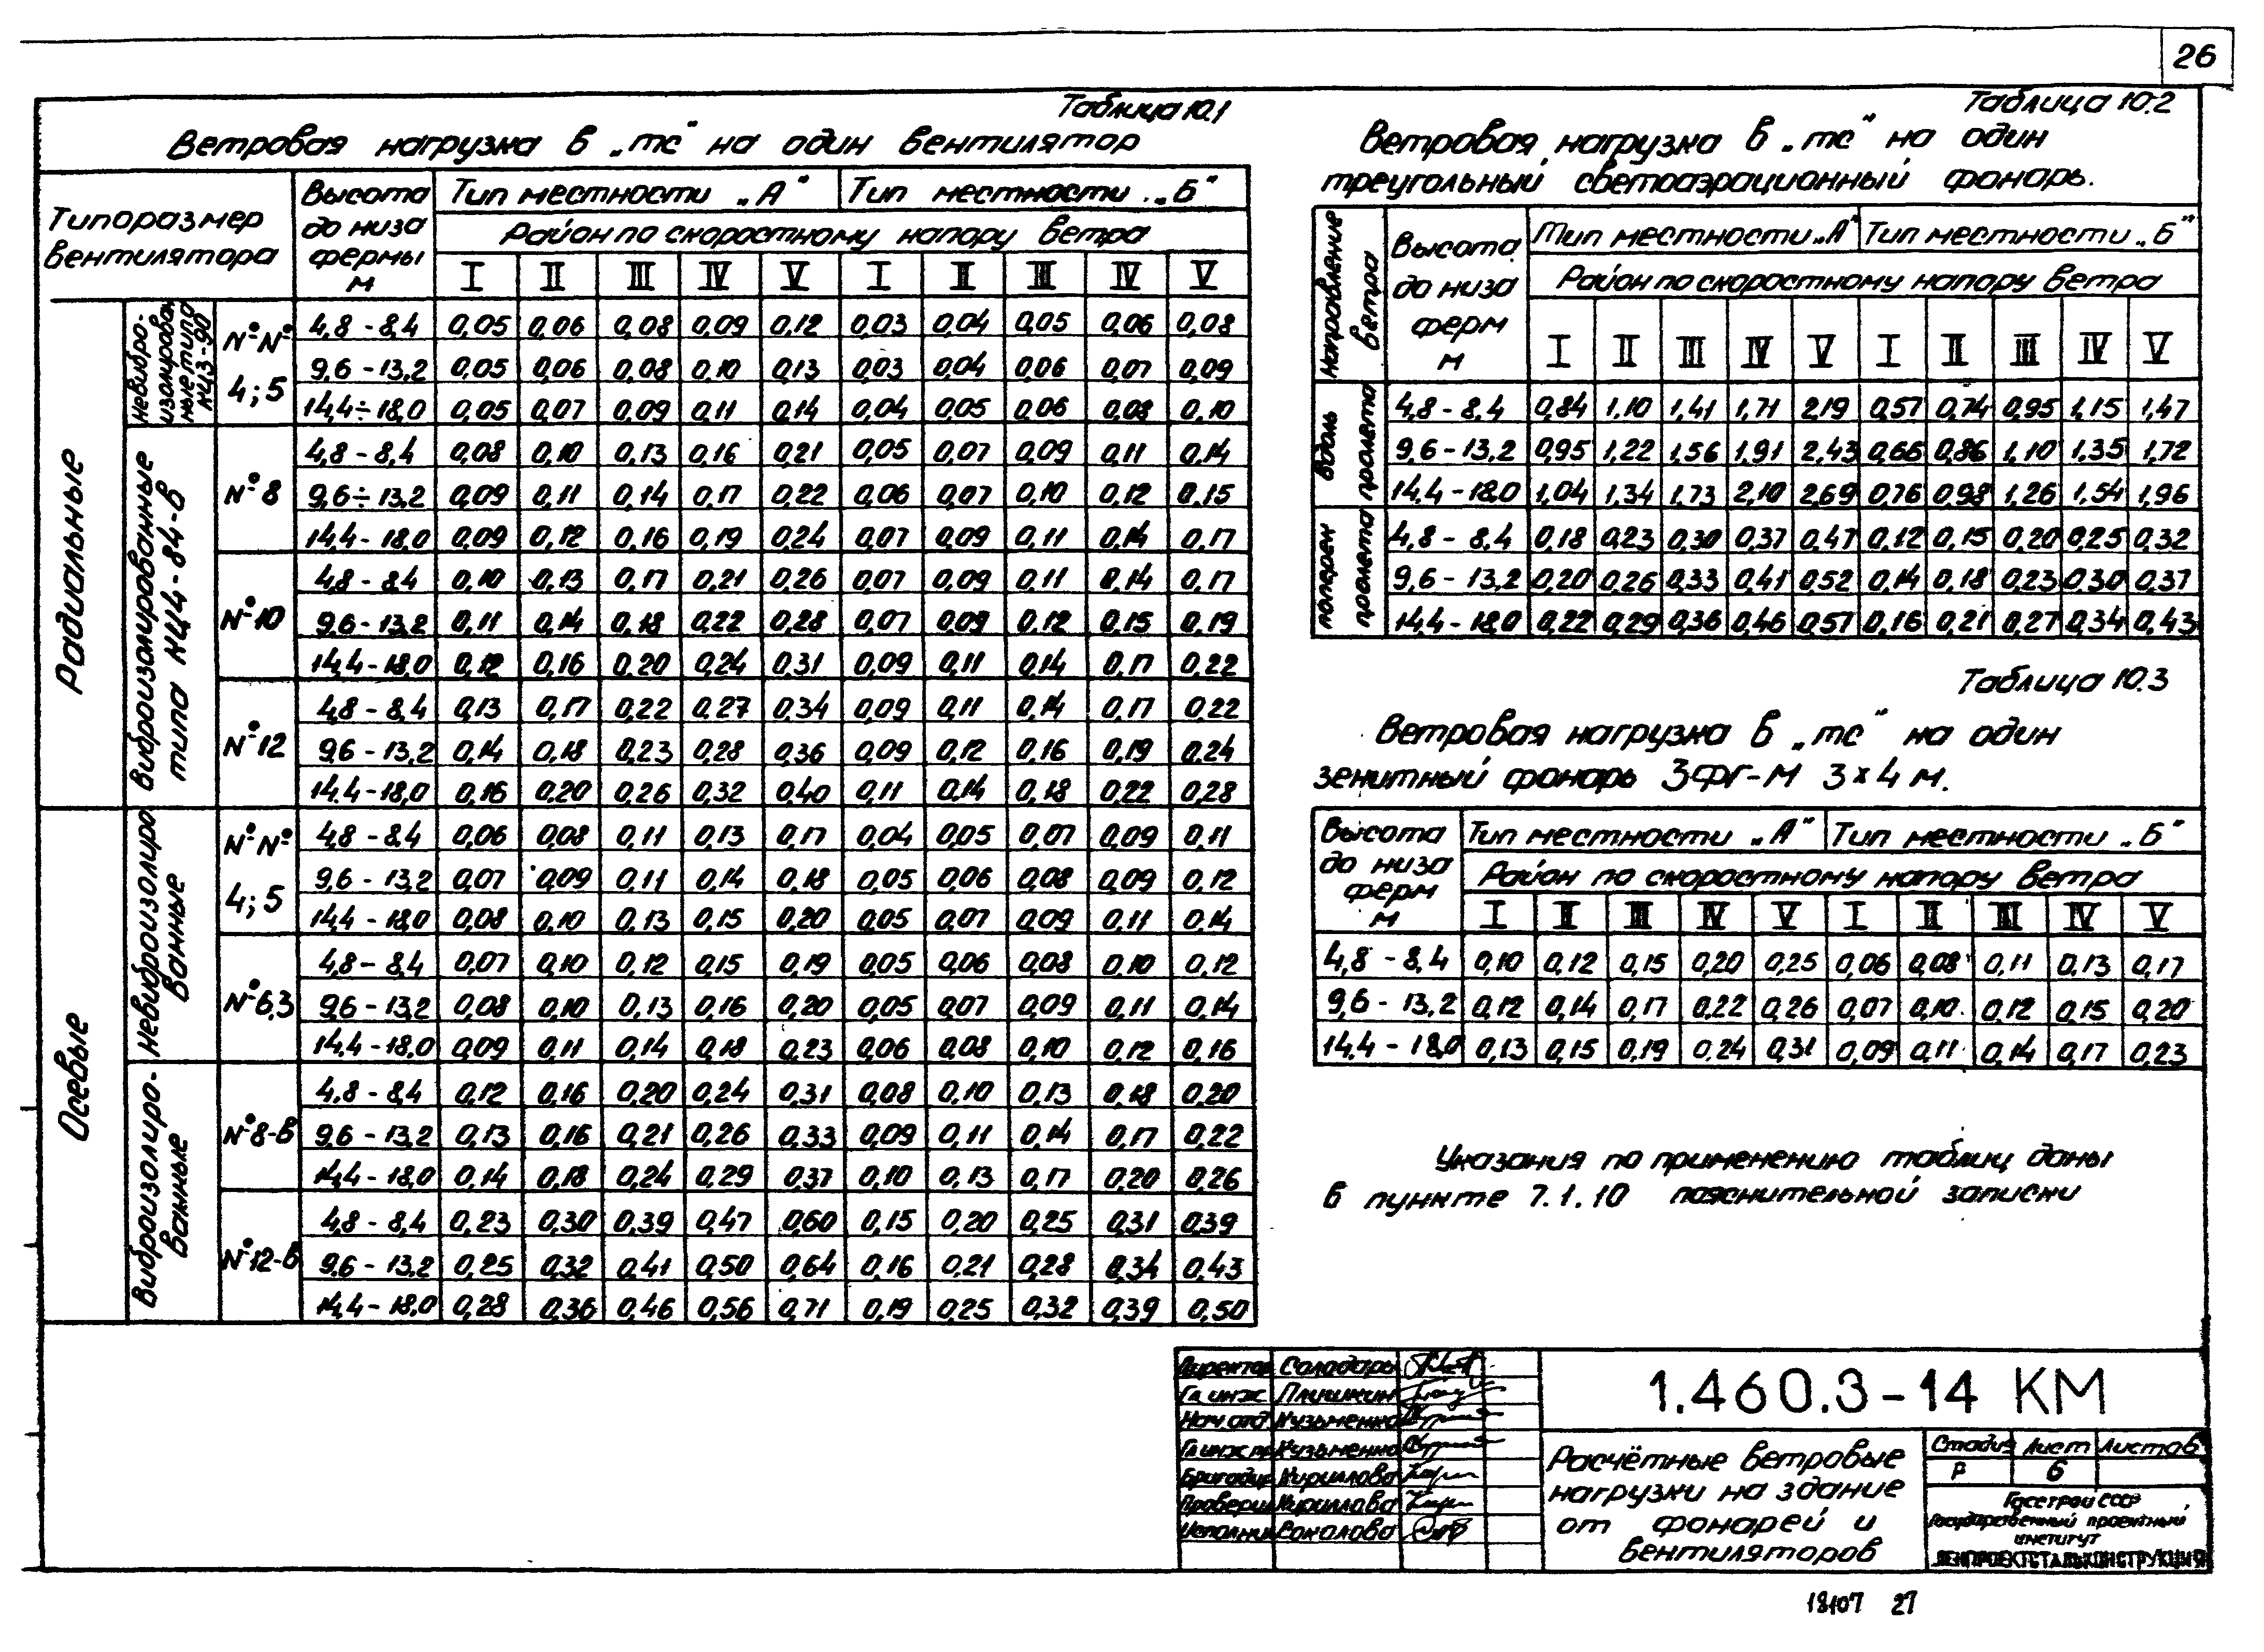 26
Таблица 10.1
Ветровая нагрузка в „тс" на один вентилятор
Типоразмер вентилятора | Высота до низа фермы м | Тип местности „А" | Тип местности „Б"
Район по скоростному напору ветра
I II III IV V I II III IV V
Радиальные
Невибро-изолирован ные типа КЦ3-90
№№ 4; 5
4,8 - 8,4 0,05 0,06 0,08 0,09 0,12 0,03 0,04 0,05 0,06 0,08
9,6 - 13,2 0,05 0,06 0,08 0,10 0,13 0,03 0,04 0,06 0,07 0,09
14,4 ÷ 18,0 0,05 0,07 0,09 0,11 0,14 0,04 0,05 0,06 0,08 0,10
Виброизолированные типа КЦ4-84-В
№ 8
4,8 - 8,4 0,08 0,10 0,13 0,16 0,21 0,05 0,07 0,09 0,11 0,14
9,6 ÷ 13,2 0,09 0,11 0,14 0,17 0,22 0,06 0,07 0,10 0,12 0,15
14,4 - 18,0 0,09 0,12 0,16 0,19 0,24 0,07 0,09 0,11 0,14 0,17
№ 10
4,8 - 8,4 0,10 0,13 0,17 0,21 0,26 0,07 0,09 0,11 0,14 0,17
9,6 - 13,2 0,11 0,14 0,18 0,22 0,28 0,07 0,09 0,12 0,15 0,19
14,4 - 18,0 0,12 0,16 0,20 0,24 0,31 0,09 0,11 0,14 0,17 0,22
№ 12
4,8 - 8,4 0,13 0,17 0,22 0,27 0,34 0,09 0,11 0,14 0,17 0,22
9,6 - 13,2 0,14 0,18 0,23 0,28 0,36 0,09 0,12 0,16 0,19 0,24
14,4 - 18,0 0,16 0,20 0,26 0,32 0,40 0,11 0,14 0,18 0,22 0,28
Осевые
Невиброизолиро ванные
№№ 4; 5
4,8 - 8,4 0,06 0,08 0,11 0,13 0,17 0,04 0,05 0,07 0,09 0,11
9,6 - 13,2 0,07 0,09 0,11 0,14 0,18 0,05 0,06 0,08 0,09 0,12
14,4 - 18,0 0,08 0,10 0,13 0,15 0,20 0,05 0,07 0,09 0,11 0,14
№ 6,3
4,8 - 8,4 0,07 0,10 0,12 0,15 0,19 0,05 0,06 0,08 0,10 0,12
9,6 - 13,2 0,08 0,10 0,13 0,16 0,20 0,05 0,07 0,09 0,11 0,14
14,4 - 18,0 0,09 0,11 0,14 0,18 0,23 0,06 0,08 0,10 0,12 0,16
Виброизолиро-ванные
№ 8-в
4,8 - 8,4 0,12 0,16 0,20 0,24 0,31 0,08 0,10 0,13 0,18 0,20
9,6 - 13,2 0,13 0,16 0,21 0,26 0,33 0,09 0,11 0,14 0,17 0,22
14,4 - 18,0 0,14 0,18 0,24 0,29 0,37 0,10 0,13 0,17 0,20 0,26
№ 12-в
4,8 - 8,4 0,23 0,30 0,39 0,47 0,60 0,15 0,20 0,25 0,31 0,39
9,6 - 13,2 0,25 0,32 0,41 0,50 0,64 0,16 0,21 0,28 0,34 0,43
14,4 - 18,0 0,28 0,36 0,46 0,56 0,71 0,19 0,25 0,32 0,39 0,50
Таблица 10.2
Ветровая нагрузка в „тс" на один
треугольный светоаэрационный фонарь.
Направление ветра | Высота до низа ферм м | Тип местности „А" | Тип местности „Б"
Район по скоростному напору ветра
I II III IV V I II III IV V
Вдоль пролета
4,8 - 8,4 0,84 1,10 1,41 1,71 2,19 0,57 0,74 0,95 1,15 1,47
9,6 - 13,2 0,95 1,22 1,56 1,91 2,43 0,66 0,86 1,10 1,35 1,72
14,4 - 18,0 1,04 1,34 1,73 2,10 2,69 0,76 0,98 1,26 1,54 1,96
поперек пролета
4,8 - 8,4 0,18 0,23 0,30 0,37 0,47 0,12 0,15 0,20 0,25 0,32
9,6 - 13,2 0,20 0,26 0,33 0,41 0,52 0,14 0,18 0,23 0,30 0,37
14,4 - 18,0 0,22 0,29 0,36 0,46 0,57 0,16 0,21 0,27 0,34 0,43
Таблица 10.3
Ветровая нагрузка в „тс" на один
зенитный фонарь ЗФГ-М 3×4 м.
Высота до низа ферм м | Тип местности „А" | Тип местности „Б"
Район по скоростному напору ветра
I II III IV V I II III IV V
4,8 - 8,4 0,10 0,12 0,15 0,20 0,25 0,06 0,08 0,11 0,13 0,17
9,6 - 13,2 0,12 0,14 0,17 0,22 0,26 0,07 0,10 0,12 0,15 0,20
14,4 - 18,0 0,13 0,15 0,19 0,24 0,31 0,09 0,11 0,14 0,17 0,23
Указания по применению таблиц даны
в пункте 7.1.10 пояснительной записки
Директор Солодарь
Гл инж Плишкин
Нач. отд Кузьменко
Гл инж пр Кузьменко
Бригадир Кириллова
Проверил Кириллова
Исполнил Соколова
1.460.3-14 КМ
Расчётные ветровые
нагрузки на здание
от фонарей и
вентиляторов
Стадия Лист Листов
Р 6
Госстрой СССР
Государственный проектный
институт
ЛЕНПРОЕКТСТАЛЬКОНСТРУКЦИЯ
18107 27